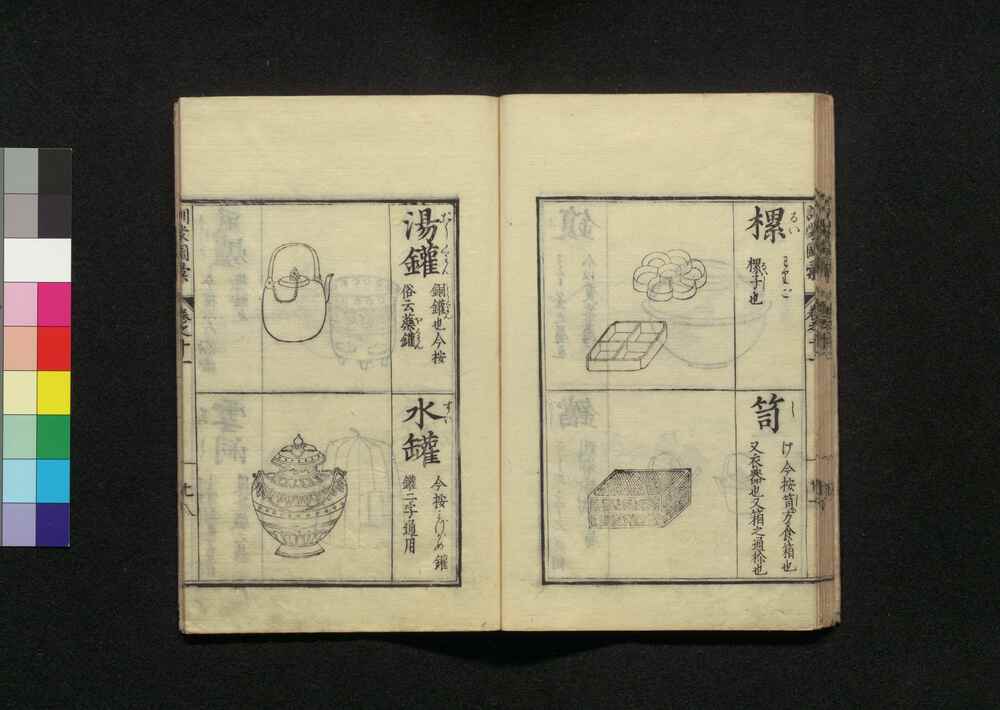 樏
るい
わりご
樏子也
笥
し
け今按笥方食箱也
又衣器也又箱之通称也
湯鑵
銅鑵也今按
俗云藥鑵
水罐
すい
今按みづがめ鑵
罐二字通用
訓蒙圖彙
卷之十一